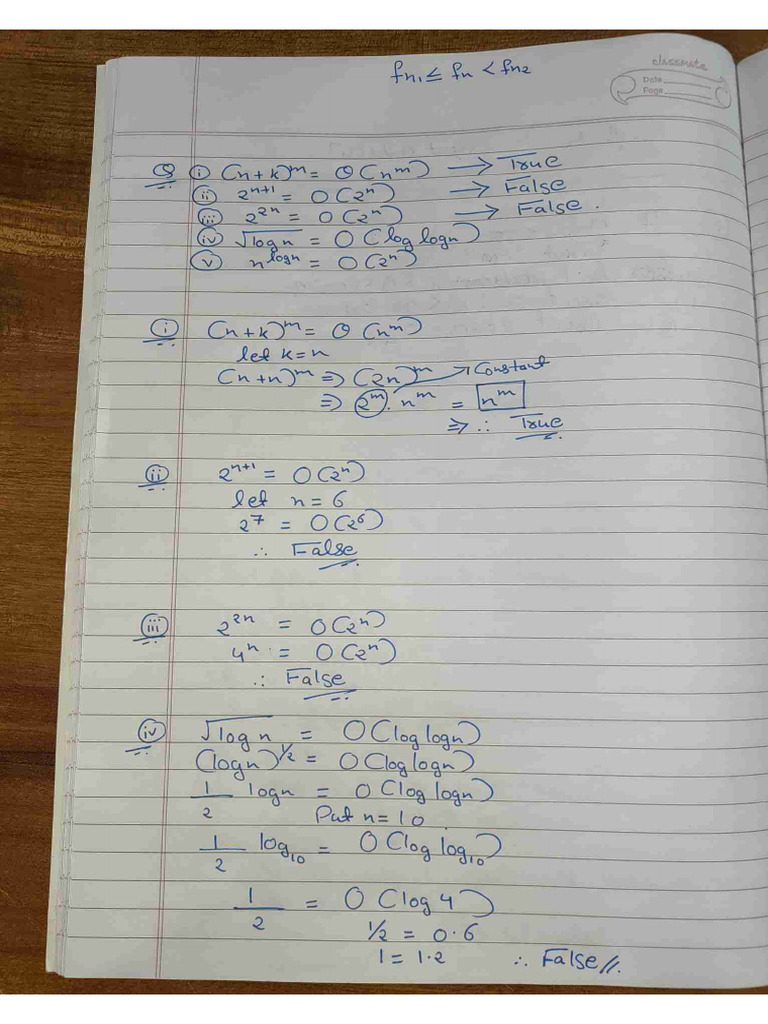 fn₁ ≤ fn < fn₂
classmate
Date
Page
Q (i) (n+k)^m = Θ(n^m) → True
(ii) 2^{n+1} = O(2^n) → False
(iii) 2^{2n} = O(2^n) → False.
(iv) √logn = O(log logn)
(v) n^{logn} = O(2^n)
(i) (n+k)^m = Θ(n^m)
let k=n
(n+n)^m ⇒ (2n)^m → Constant
⇒ 2^m . n^m = n^m
⇒ ∴ True
(ii) 2^{n+1} = O(2^n)
let n=6
2^7 = O(2^6)
∴ False
(iii) 2^{2n} = O(2^n)
4^n = O(2^n)
∴ False
(iv) √logn = O(log logn)
(logn)^{1/2} = O(log logn)
1/2 logn = O(log logn)
Put n=10
1/2 log₁₀ = O(log log₁₀)
1/2 = O(log 4)
1/2 = 0.6
1 = 1.2 ∴ False //.